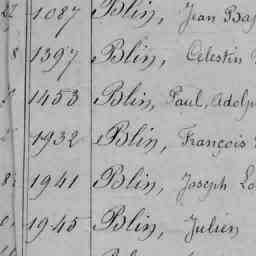 1087 Blin, Jean Bap
8 1397 Blin, Célestin
1453 Blin, Paul, Adolp
1932 Blin, François
8 1941 Blin, Joseph Lo
1945 Blin, Julien